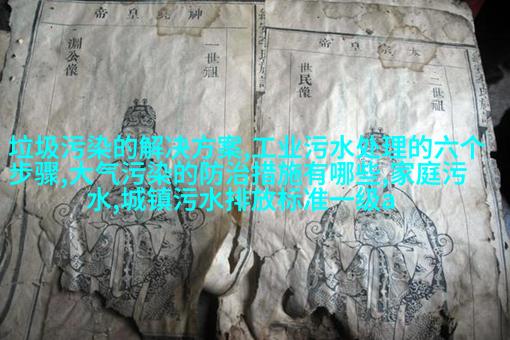 神堯皇帝
一世祖
淵公像
太宗皇帝
二世祖
世民像
垃圾污染的解决方案,工业污水处理的六个
步骤,大气污染的防治措施有哪些,家庭污
水,城镇污水排放标准一级a